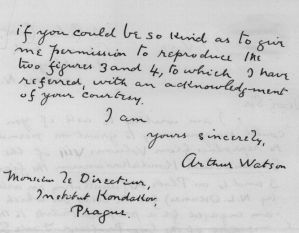 if you could be so kind as to give
me permission to reproduce the
two figures 3 and 4, to which I have
referred, with an acknowledgment
of your courtesy.
I am
yours sincerely,
Arthur Watson
Monsieur le Directeur,
Institut Kondakov,
Prague.